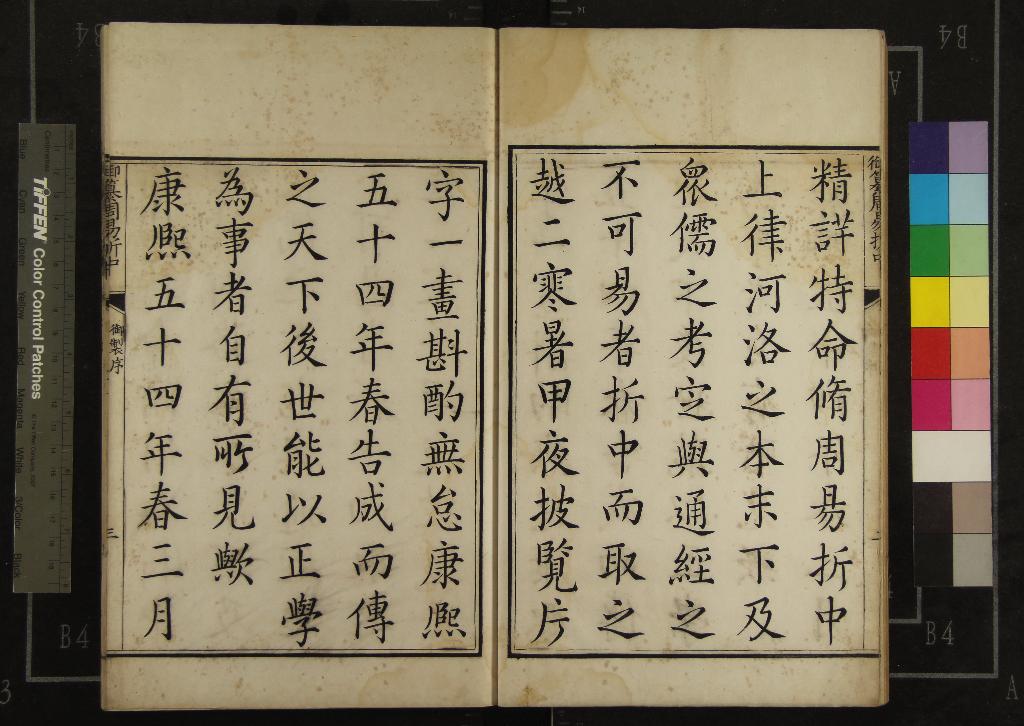 精詳特命脩周易折中
上律河洛之本末下及
衆儒之考定與通經之
不可易者折中而取之
越二寒暑甲夜披覽片
字一畫斟酌無怠康熙
五十四年春告成而傳
之天下後世能以正學
為事者自有所見歟
康熙五十四年春三月
御纂周易折中
御製序
三
御纂周易折中
TIFFEN Color Control Patches
Blue
Cyan
Green
Yellow
Red
Magenta
White
3/Color
Black
Centimetres
B4
B4
B4
B4
A
A
3